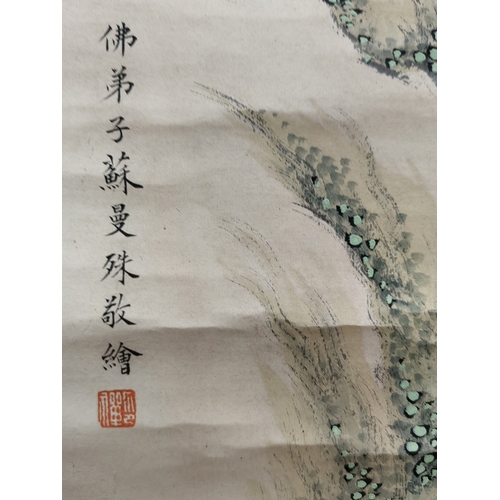 佛弟子蘇曼殊敬繪